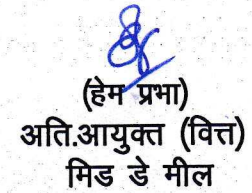 (हेम प्रभा)
अति.आयुक्त (वित्त)
मिड डे मील